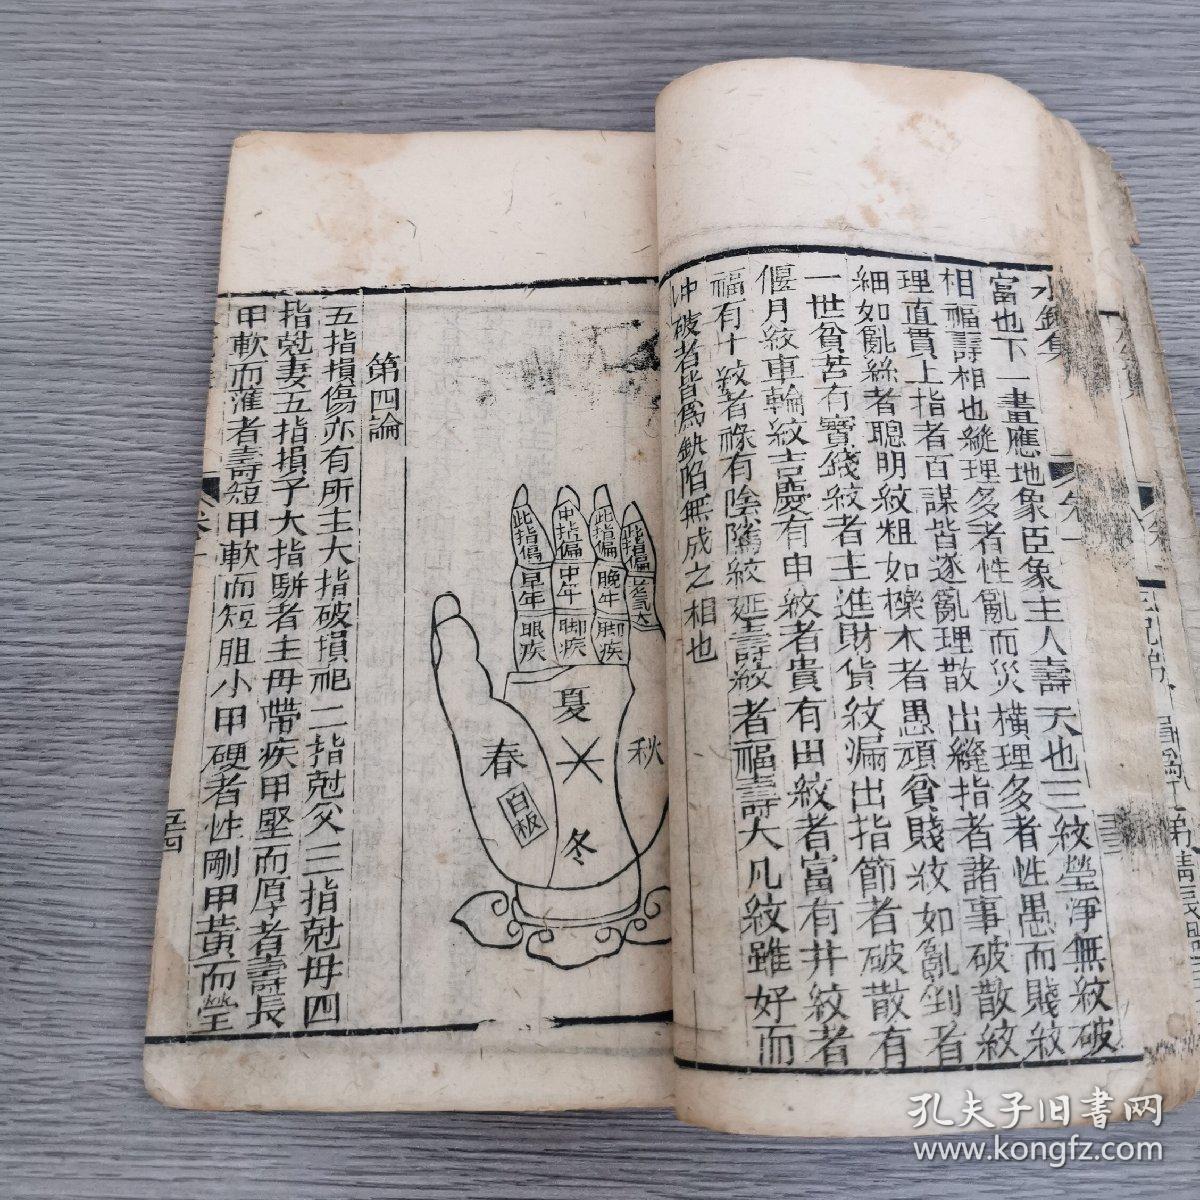 水鏡集
卷一
富也下一畫應地象臣象主人壽夭也三紋瑩淨無紋破
相福壽相也縱理多者性亂而災橫理多者性愚而賤紋
理直貫上指者百謀皆遂亂理散出縫指者諸事破散紋
細如亂絲者聰明紋粗如櫟木者愚頑貧賤紋如亂刣者
一世貧苦有寶錢紋者主進財貨紋漏出指節者破散有
偃月紋車輪紋吉慶有申紋者貴有田紋者富有井紋者
福有十紋者祿有陰隲紋延壽紋者福壽大凡紋雖好而
冲破者皆爲缺陷無成之相也
此指偏早年眼疾
中指偏中年脚疾
此指偏晚年脚疾
此指偏
夏
春
秋
冬
白板
第四論
五指損傷亦有所主大指破損祀二指尅父三指尅母四
指尅妻五指損子大指駢者主母帶疾甲堅而厚者壽長
甲軟而漼者壽短甲軟而短胆小甲硬者性剛甲黃而瑩
卷一
五四
孔夫子旧书网
www.kongfz.com